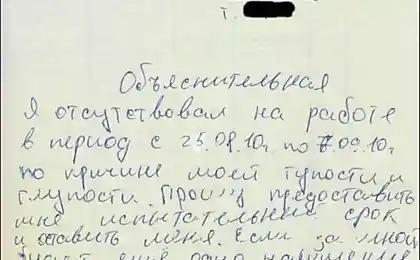 т.
Объяснительная
Я отсутствовал на работе
в период с 25.08.10г. по 7.09.10г.
по причине моей тупости и
глупости. Прошу предоставить
мне испытательный срок
и оставить меня. Если за мной
ещё одно нарушение